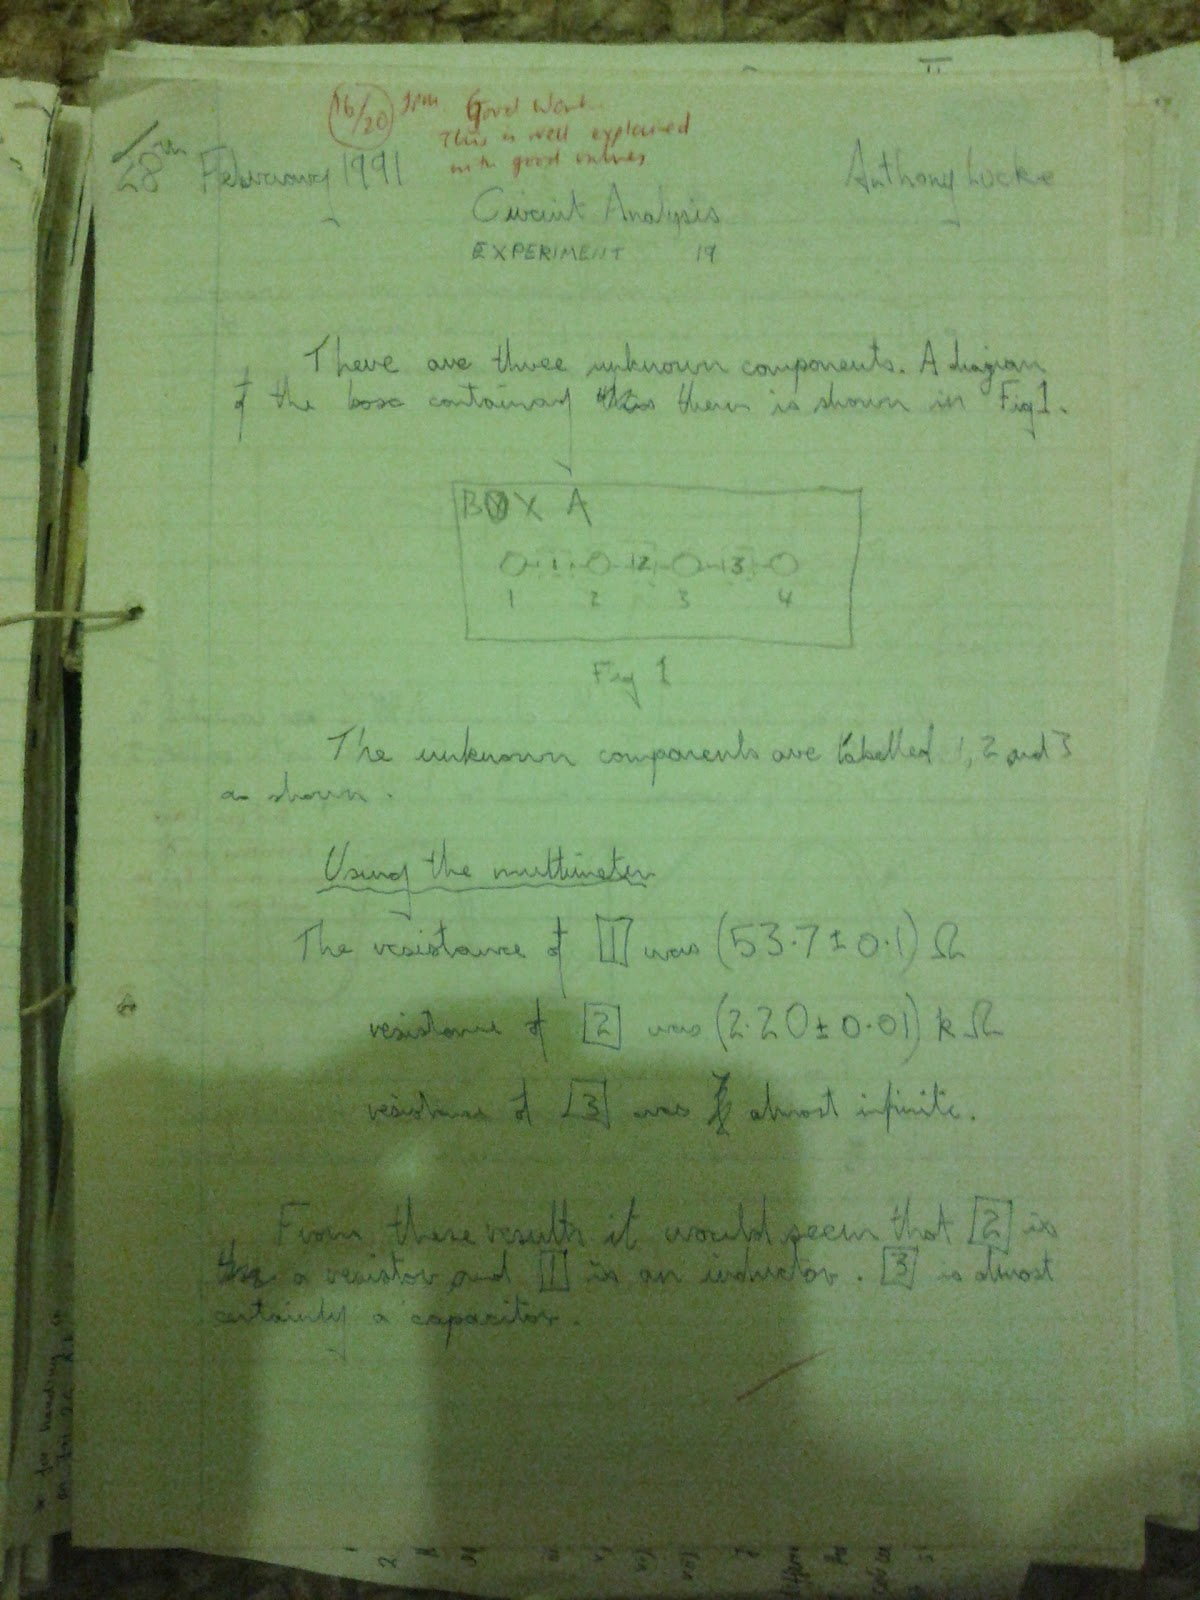 16/20 Good Work.
This is well explained
with good values
28th February 1991 Anthony Lucke
Circuit Analysis
EXPERIMENT 19
There are three unknown components. A diagram
of the box containing them is shown in Fig 1.
BOX A
1 2 3
1 2 3 4
Fig 1
The unknown components are labelled 1, 2 and 3
as shown.
Using the multimeter
The resistance of [1] was (53.7 ± 0.1) Ω
resistance of [2] was (2.20 ± 0.01) k Ω
resistance of [3] was almost infinite.
From these results it would seem that [2] is
a resistor and [1] is an inductor. [3] is almost
certainly a capacitor.